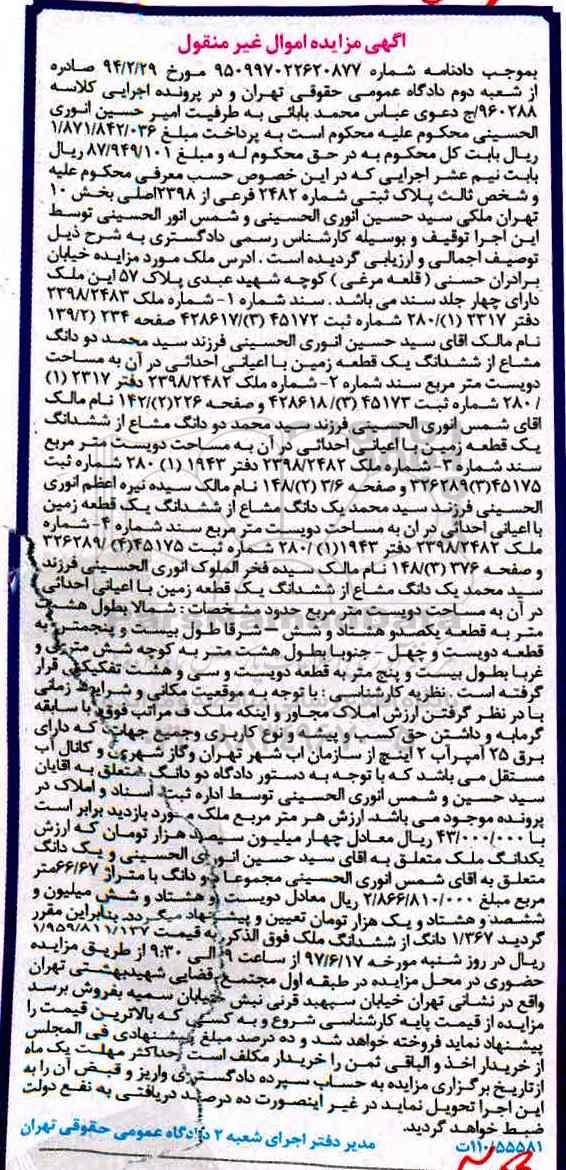 آگهی مزایده اموال غیر منقول
بموجب دادنامه شماره ۹۵۰۹۹۷۰۲۲۶۲۰۸۷۷ مورخ ۹۴/۲/۲۹ صادره
از شعبه دوم دادگاه عمومی حقوقی تهران و در پرونده اجرایی کلاسه
۹۶۰۲۸۸/ج دعوی عباس محمد بابائی به طرفیت امیر حسین انوری
الحسینی محکوم علیه محکوم است به پرداخت مبلغ ۱/۸۷۱/۸۴۲/۰۳۶
ریال بابت کل محکوم به در حق محکوم له و مبلغ ۸۷/۹۴۹/۱۰۱ ریال
بابت نیم عشر اجرایی که در این خصوص حسب معرفی محکوم علیه
و شخص ثالث پلاک ثبتی شماره ۲۴۸۲ فرعی از ۲۳۹۸اصلی بخش ۱۰
تهران ملکی سید حسین انوری الحسینی و شمس انور الحسینی توسط
این اجرا توقیف و بوسیله کارشناس رسمی دادگستری به شرح ذیل
توصیف اجمالی و ارزیابی گردیده است . ادرس ملک مورد مزایده خیابان
برادران حسنی ( قلعه مرغی ) کوچه شهید عبدی پلاک ۵۷ این ملک
دارای چهار جلد سند می باشد . سند شماره ۱- شماره ملک ۲۳۹۸/۲۴۸۳
دفتر ۲۳۱۷ (۱)/۲۸۰ شماره ثبت ۴۵۱۷۲ (۳)/۴۲۸۶۱۷ صفحه ۲۳۴ (۱۳۹/۲
نام مالک اقای سید حسین انوری الحسینی فرزند سید محمد دو دانگ
مشاع از ششدانگ یک قطعه زمین با اعیانی احداثی در آن به مساحت
دویست متر مربع سند شماره ۲- شماره ملک ۲۳۹۸/۲۴۸۲ دفتر ۲۳۱۷ (۱)
/ ۲۸۰ شماره ثبت ۴۵۱۷۳ (۳)/ ۴۲۸۶۱۸ و صفحه ۲۲۶(۲)/۱۴۲ نام مالک
اقای شمس انوری الحسینی فرزند سید محمد دو دانگ مشاع از ششدانگ
یک قطعه زمین با اعیانی احداثی در آن به مساحت دویست متر مربع
سند شماره ۳- شماره ملک ۲۳۹۸/۲۴۸۲ دفتر ۱۹۴۳ (۱) ۲۸۰ شماره ثبت
۴۵۱۷۵(۳)۳۲۶۲۸۹ و صفحه ۳/۶ (۲)/۱۴۸ نام مالک سیده نیره اعظم انوری
الحسینی فرزند سید محمد یک دانگ مشاع از ششدانگ یک قطعه زمین
با اعیانی احداثی در ان به مساحت دویست متر مربع سند شماره ۴- شماره
ملک ۲۳۹۸/۲۴۸۲ دفتر ۱۹۴۳(۱) /۲۸۰ شماره ثبت ۴۵۱۷۵(۴) /۳۲۶۲۸۹
و صفحه ۳۷۶ (۲)/۱۴۸ نام مالک سیده فخر الملوک انوری الحسینی فرزند
سید محمد یک دانگ مشاع از ششدانگ یک قطعه زمین با اعیانی احداثی
در آن به مساحت دویست متر مربع حدود مشخصات : شمالا بطول هشت
متر به قطعه یکصدو هشتاد و شش – شرقا طول بیست و پنجمتر به
قطعه دویست و چهل - جنوبا بطول هشت متر به کوچه شش متری و
غربا بطول بیست و پنج متر به قطعه دویست و سی و هشت تفکیکی قرار
گرفته است . نظریه کارشناسی : با توجه به موقعیت مکانی و شرایط زمانی
با در نظر گرفتن ارزش املاک مجاور و اینکه ملک فد مراتب فوق با سابقه
گرمابه و داشتن حق کسب و پیشه و نوع کاربری وجمیع جهات که دارای
برق ۲۵ آمپرآب ۲ اینچ از سازمان اب شهر تهران وگاز شهری و کانال آب
مستقل می باشد که با توجه به دستور دادگاه دو دانگ متعلق به اقایان
سید حسین و شمس انوری الحسینی توسط اداره ثبت اسناد و املاک در
پرونده موجود می باشد. ارزش هر متر مربع ملک مورد بازدید برابر است
با ۴۳/۰۰۰/۰۰۰ ریال معادل چهار میلیون سیصد هزار تومان که ارزش
یکدانگ ملک متعلق به اقای سید حسین انوری الحسینی و یک دانگ
متعلق به اقای شمس انوری الحسینی مجموعا دو دانگ با متراژ ۶۶/۶۷متر
مربع مبلغ ۲/۸۶۶/۸۱۰/۰۰۰ ریال معادل دویست و هشتاد و شش میلیون و
ششصد و هشتاد و یک هزار تومان تعیین و پیشنهاد میگردد. بنابراین مقرر
گردید ۱/۳۶۷ دانگ از ششدانگ ملک فوق الذکر به قیمت ۱/۹۵۹/۸۱۱/۱۳۷
ریال در روز شنبه مورخه ۹۷/۶/۱۷ از ساعت ۹ الی ۹:۳۰ از طریق مزایده
حضوری در محل مزایده در طبقه اول مجتمع قضایی شهیدبهشتی تهران
واقع در نشانی تهران خیابان سپهبد قرنی نبش خیابان سمیه بفروش برسد
مزایده از قیمت پایه کارشناسی شروع و به کسی که بالاترین قیمت را
پیشنهاد نماید فروخته خواهد شد و ده درصد مبلغ پیشنهادی فی المجلس
از خریدار اخذ و الباقی ثمن را خریدار مکلف است حداکثر مهلت یک ماه
ازتاریخ برگزاری مزایده به حساب سپرده دادگستری واریز و قبض آن را به
این اجرا تحویل نماید در غیر اینصورت ده درصد دریافتی به نفع دولت
ضبط خواهد گردید.
۱۱۰/۵۵۵۸۱ت مدیر دفتر اجرای شعبه ۲ دادگاه عمومی حقوقی تهران